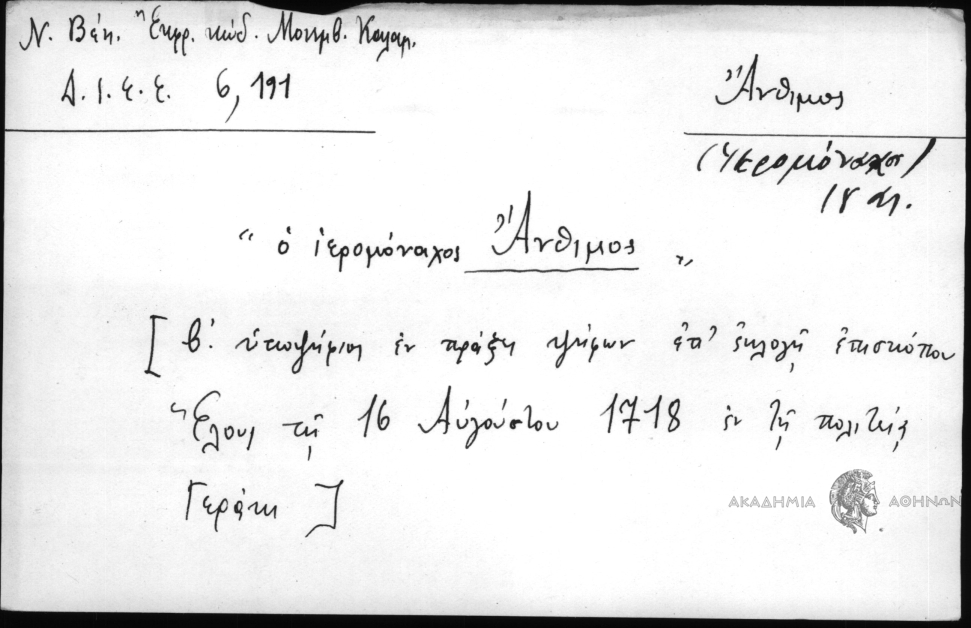 Ν. Βέη. Ἔκφρ. κώδ. Μονεμβ. Καλαμ.
Δ. Ι. Ε. Ε. 6, 191
Ἄνθιμος
(Ἱερομόναχος)
18 αι.
“ ὁ ἱερομόναχος Ἄνθιμος „
[ β. ὑποψήφιος ἐν πράξει ψήφων ἐπ' ἐκλογῇ ἐπισκόπου
Ἕλους τῇ 16 Αὐγούστου 1718 ἐν τῇ πολιτείᾳ
Γεράκι ]
ΑΚΑΔΗΜΙΑ ΑΘΗΝΩΝ